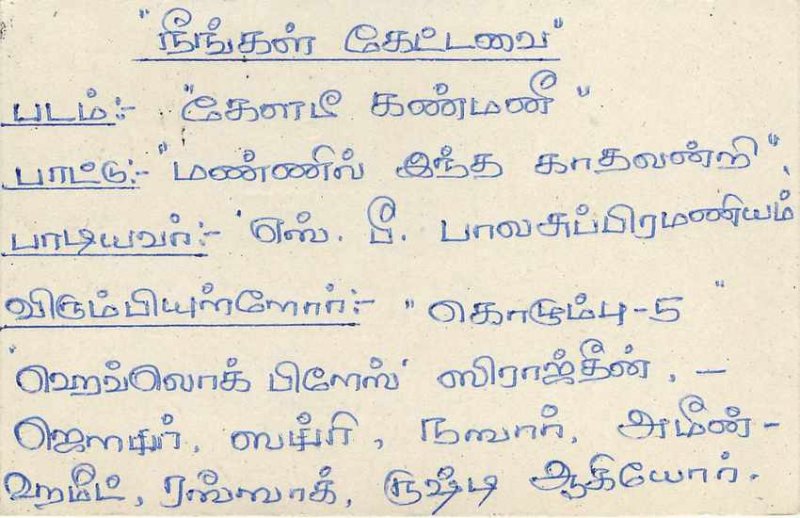 "நீங்கள் கேட்டவை"
படம்:- "கேளடீ கண்மணீ"
பாட்டு:- "மண்ணில் இந்த காதலன்றி".
பாடியவர்:- 'எஸ். பீ. பாலசுப்பிரமணியம்
விரும்பியுள்ளோர்:- "கொழும்பு-5"
'ஹெவ்லொக் பிளேஸ்' ஸிராஜ்தீன், -
ஜௌபர், ஸப்ரி, நஸார், அமீன் -
ஹமீட், ரஸ்ஸாக், ருஷ்டி ஆகியோர்.